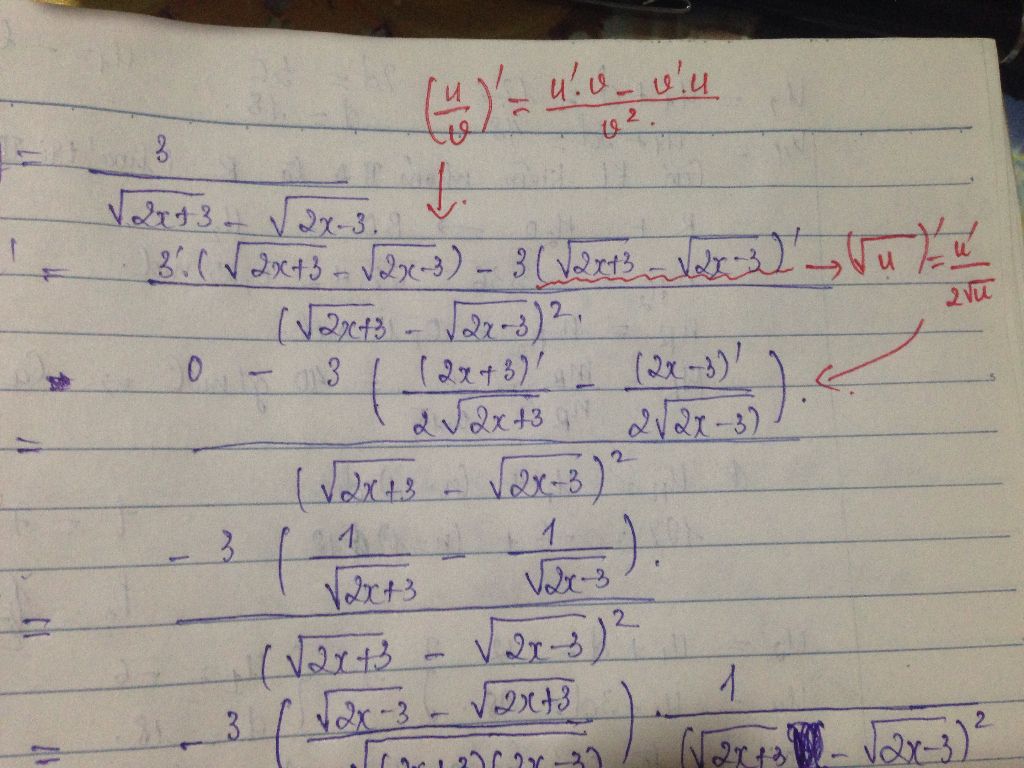 (u/v)' = (u'.v - v'.u)/v².
= 3/(√(2x+3) - √(2x-3)).
' = (3'.(√(2x+3) - √(2x-3)) - 3(√(2x+3) - √(2x-3))')/(√(2x+3) - √(2x-3))². → (√u)' = u'/(2√u)
= (0 - 3((2x+3)'/(2√(2x+3)) - (2x-3)'/(2√(2x-3))))/(√(2x+3) - √(2x-3))²
= (-3(1/√(2x+3) - 1/√(2x-3)))/(√(2x+3) - √(2x-3))²
= -3((√(2x-3) - √(2x+3))/√((2x+3)(2x-3))) . 1/(√(2x+3) - √(2x-3))²